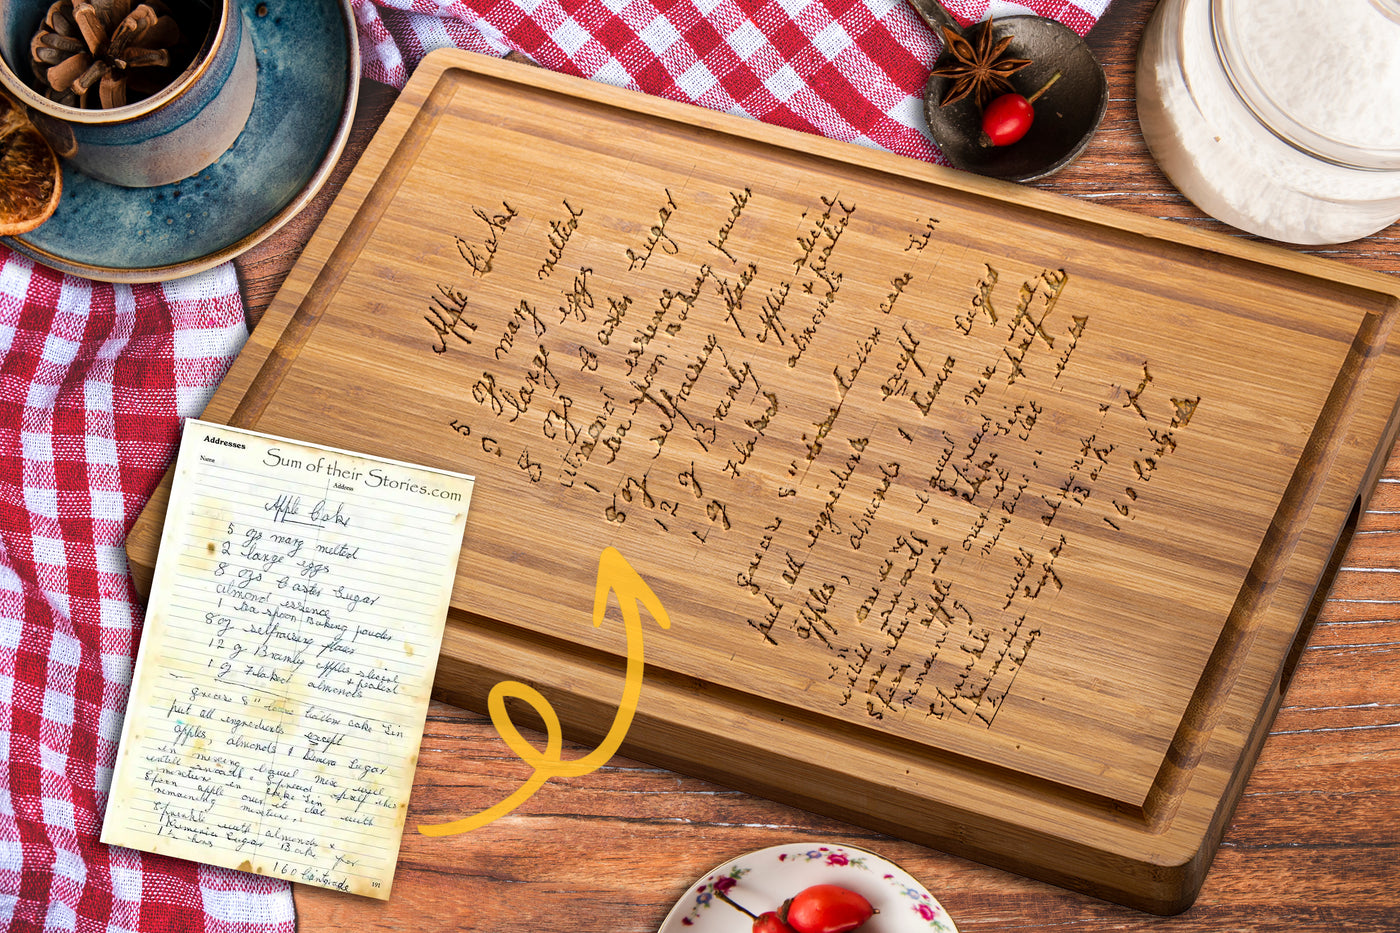 Apple Cake
5 ozs marg melted
2 large eggs
8 ozs Caster Sugar
almond essence
1 tea spoon Baking powder
8 oz selfraising flour
12 oz Bramly apples sliced
& peeled
1 oz Flaked almonds
grease 8" bottom cake tin
put all ingredients except
apples, almonds & Demera Sugar
in mixing bowel mix well
untill smooth. Spread half the
mixture in cake tin
Spoon apple over it dot with
remaining mixture.
Sprinkle with almonds &
Sugar Bake for
1½ hrs
160 Centigrade
Addresses
Sum of their Stories.com
Name
Address
Apple Cake
5 ozs marg melted
2 large eggs
8 ozs Caster Sugar
almond essence
1 tea spoon Baking powder
8 oz selfraising flour
12 oz Bramly apples sliced
& peeled
1 oz Flaked almonds
grease 8" loose bottom cake tin
put all ingredients except
apples, almonds & Demera Sugar
in mixing bowel mix well
untill smooth. Spread half the
mixture in cake tin
Spoon apple over it dot with
remaining mixture.
Sprinkle with almonds &
Sugar Bake for
1½ hrs
160 Centigrade
191